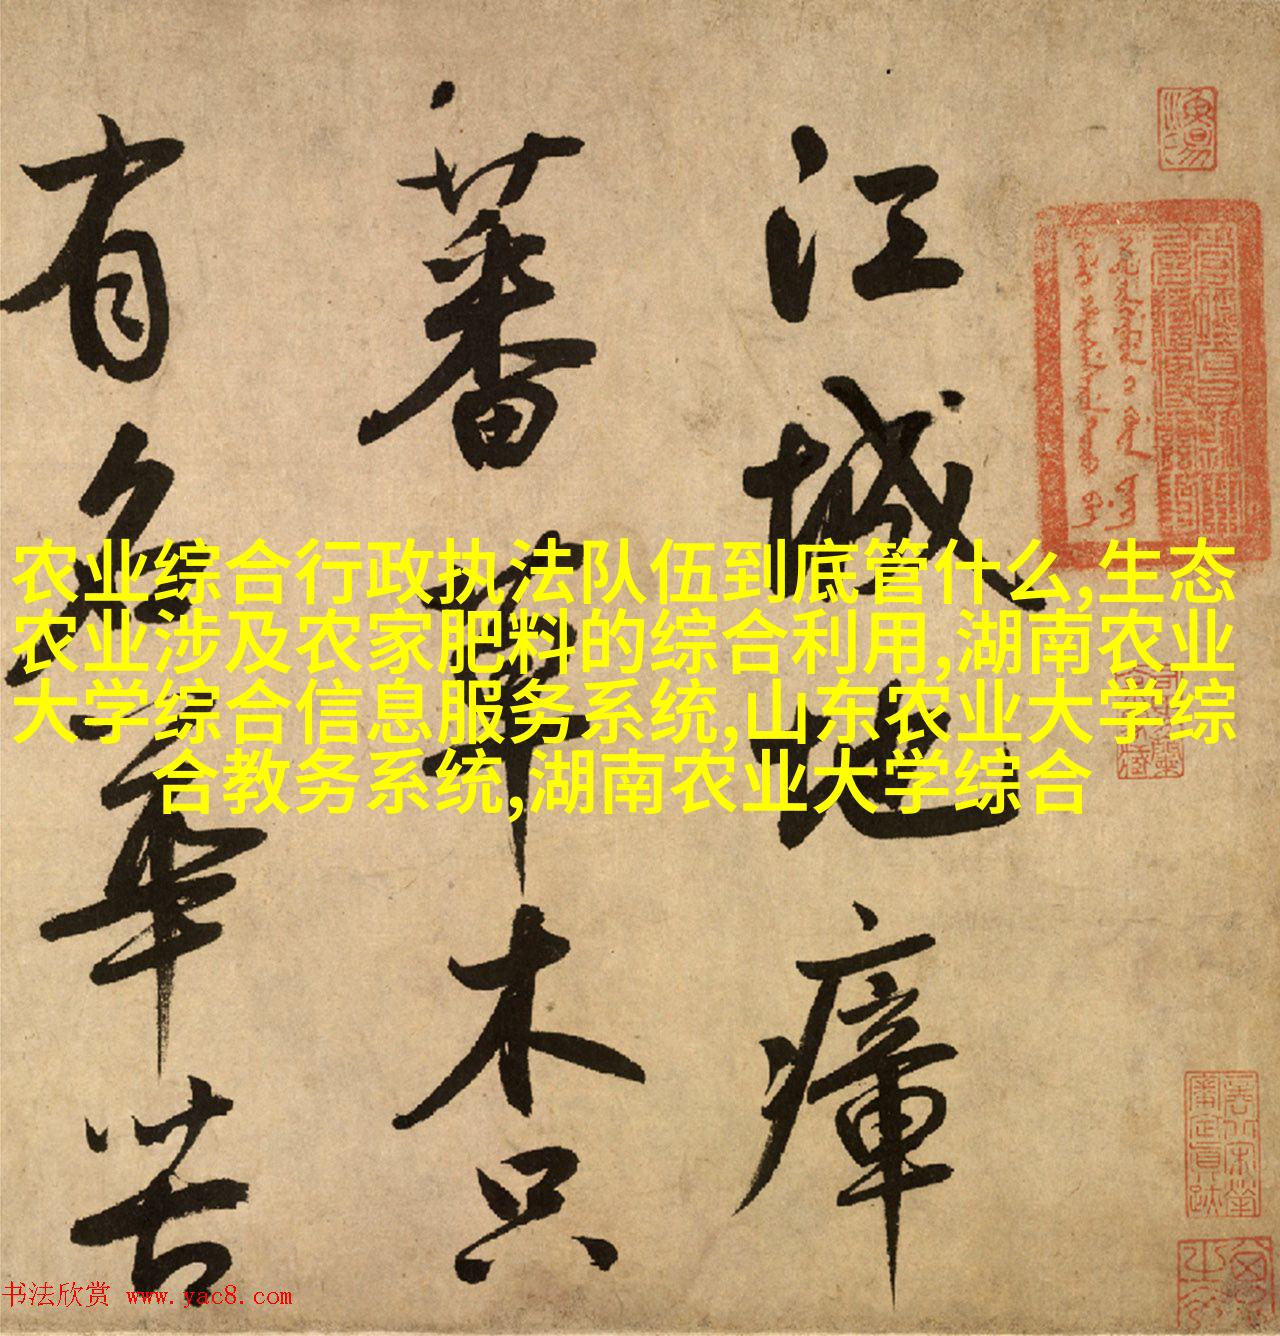 江城地瘴
蕃草木只
有名華苦
农业综合行政执法队伍到底管什么,生态
农业涉及农家肥料的综合利用,湖南农业
大学综合信息服务系统,山东农业大学综
合教务系统,湖南农业大学综合
书法欣赏 www.yac8.com